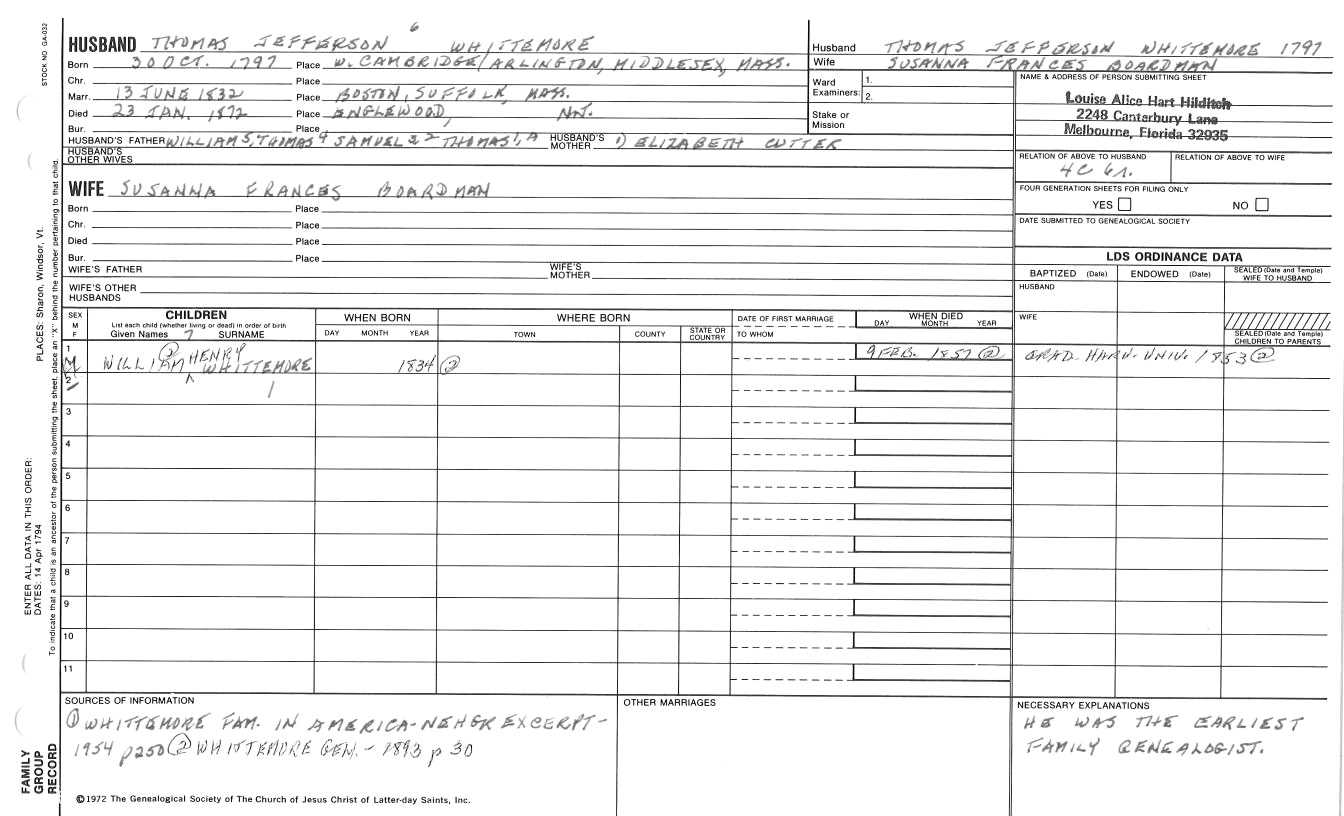 STOCK NO. GA-032
HUSBAND THOMAS JEFFERSON 6 WHITTEMORE
Born 30 OCT. 1797 Place W. CAMBRIDGE/ARLINGTON, MIDDLESEX, MASS.
Chr. Place
Marr. 13 JUNE 1832 Place BOSTON, SUFFOLK, MASS.
Died 23 JAN. 1872 Place ENGLEWOOD, N.J.
Bur. Place
HUSBAND'S FATHER WILLIAM 5, THOMAS 4 SAMUEL 3 2 THOMAS 1, A HUSBAND'S MOTHER 1) ELIZABETH CUTTER
HUSBAND'S OTHER WIVES
Husband THOMAS JEFFERSON WHITTEMORE 1797
Wife SUSANNA FRANCES BOARDMAN
Ward Examiners: 1.
2.
Stake or Mission
NAME & ADDRESS OF PERSON SUBMITTING SHEET
Louise Alice Hart Hilditch
2248 Canterbury Lane
Melbourne, Florida 32935
RELATION OF ABOVE TO HUSBAND RELATION OF ABOVE TO WIFE
4C 6r.
FOUR GENERATION SHEETS FOR FILING ONLY
YES NO
DATE SUBMITTED TO GENEALOGICAL SOCIETY
WIFE SUSANNA FRANCES BOARDMAN
Born Place
Chr. Place
Died Place
Bur. Place
WIFE'S FATHER WIFE'S MOTHER
WIFE'S OTHER HUSBANDS
LDS ORDINANCE DATA
BAPTIZED (Date) ENDOWED (Date) SEALED (Date and Temple) WIFE TO HUSBAND
HUSBAND
WIFE
SEALED (Date and Temple) CHILDREN TO PARENTS
SEX M F
CHILDREN
List each child (whether living or dead) in order of birth
Given Names 7 SURNAME
WHEN BORN
DAY MONTH YEAR
WHERE BORN
TOWN COUNTY STATE OR COUNTRY
DATE OF FIRST MARRIAGE
TO WHOM
WHEN DIED
DAY MONTH YEAR
1 M WILLIAM HENRY (2) WHITTEMORE 1834 (2) 9 FEB. 1857 (2) GRAD. HARV. UNIV. 1853 (2)
2 1
3
4
5
6
7
8
9
10
11
SOURCES OF INFORMATION
① WHITTEMORE FAM. IN AMERICA-NEHGR EXCERPT-
1954 p250 ② WHITTEMORE GEN. - 1893 p 30
OTHER MARRIAGES
NECESSARY EXPLANATIONS
HE WAS THE EARLIEST
FAMILY GENEALOGIST.
©1972 The Genealogical Society of The Church of Jesus Christ of Latter-day Saints, Inc.
FAMILY GROUP RECORD
ENTER ALL DATA IN THIS ORDER:
DATES: 14 Apr 1794 PLACES: Sharon, Windsor, Vt.
To indicate that a child is an ancestor of the person submitting the sheet, place an "X" behind the number pertaining to that child.